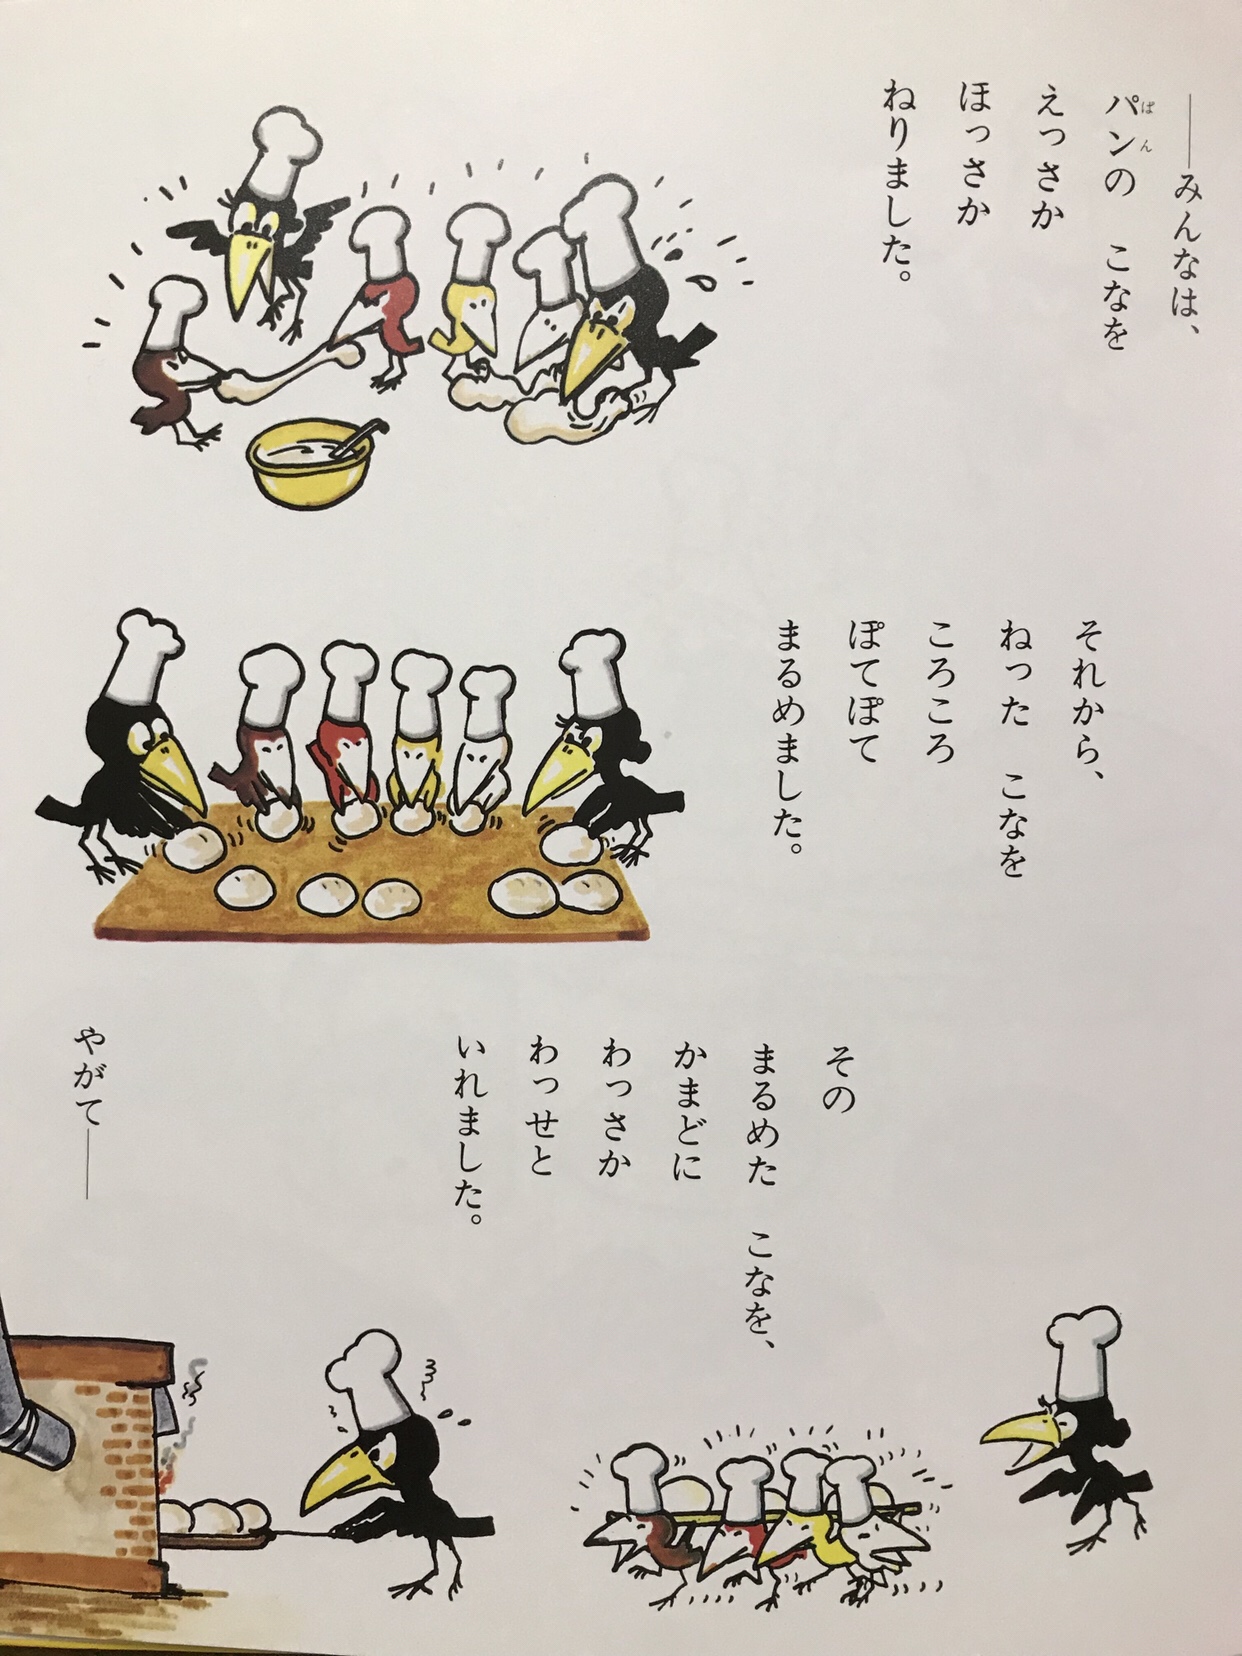 ――みんなは、
パンの　こなを
えっさか
ほっさか
ねりました。
それから、
ねった　こなを
ころころ
ぽてぽて
まるめました。
その
まるめた　こなを、
かまどに
わっさか
わっせと
いれました。
やがて――